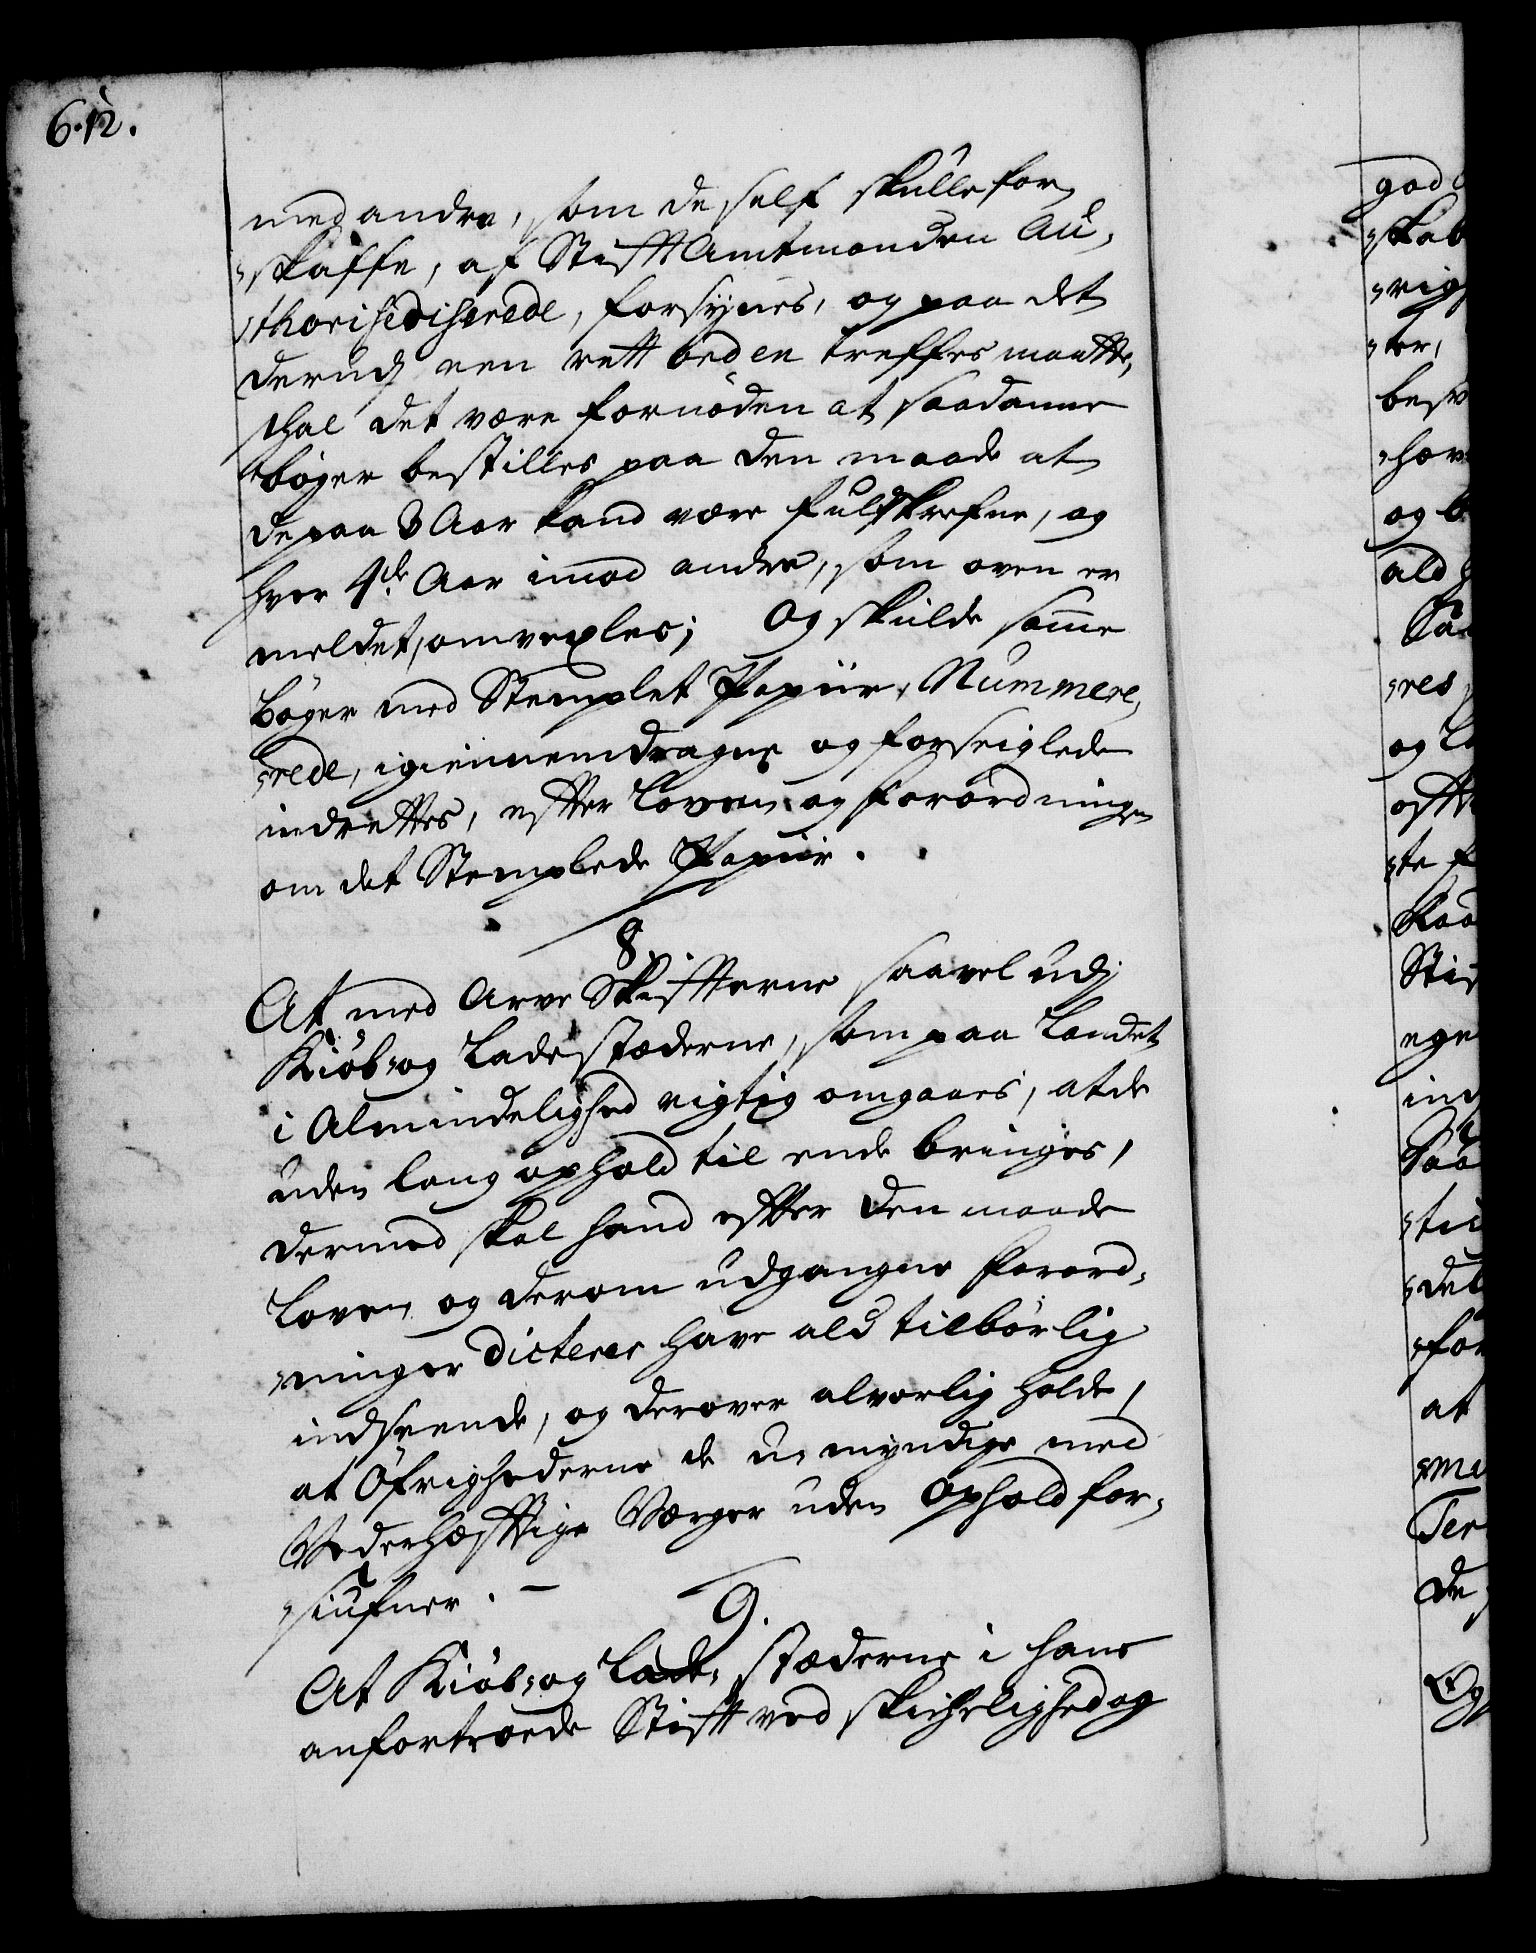 612.
med andre, som de self skulle for,
„skaffe, af StifftAmtmanden Au,
„thorisediserede, forsÿnes, og paa det
derudj een rett orden treffes maatte,
skal det være fornöden at saadanne
böger bestilles paa den maade at
de paa 3 Aar kand være fuldskrefne, og
hver 4de Aar imod andre, som oven er
meldet, omvexles; Og skulde samme
böger med Stemplet Papiir, Nummere,
„rede, igiennemdragne og forseiglede
indrettes, efter Loven og forordningen
om det Stemplede Papiir.
8.
At med Arve Skiffterne saavel udj
Kiöb„og Ladestæderne, som paa Landet
i Almindelighed rigtig omgaaes, at de
uden lang ophold til ende bringes,
dermed skal hand efter den maade
Loven og derom udgangne forord„
„ninger dicterer have ald tilbörlig
indseende, og derover alvorlig holde,
at Öfrighederne de u„myndige med
Vederhæfftige Værger uden Ophold for„
„siufner. —
9.
At Kiöb„og Lade„stæderne i hans
anfortroede Stifft ved skichelighed og
god
„skab
„rig
„ter,
besv
„hæv
og b
ald
Saa
„res
og L
„te f
Raa
Stif
ege
ind
Saa
„tid
„det
„for
at
„me
Ter
de
Og